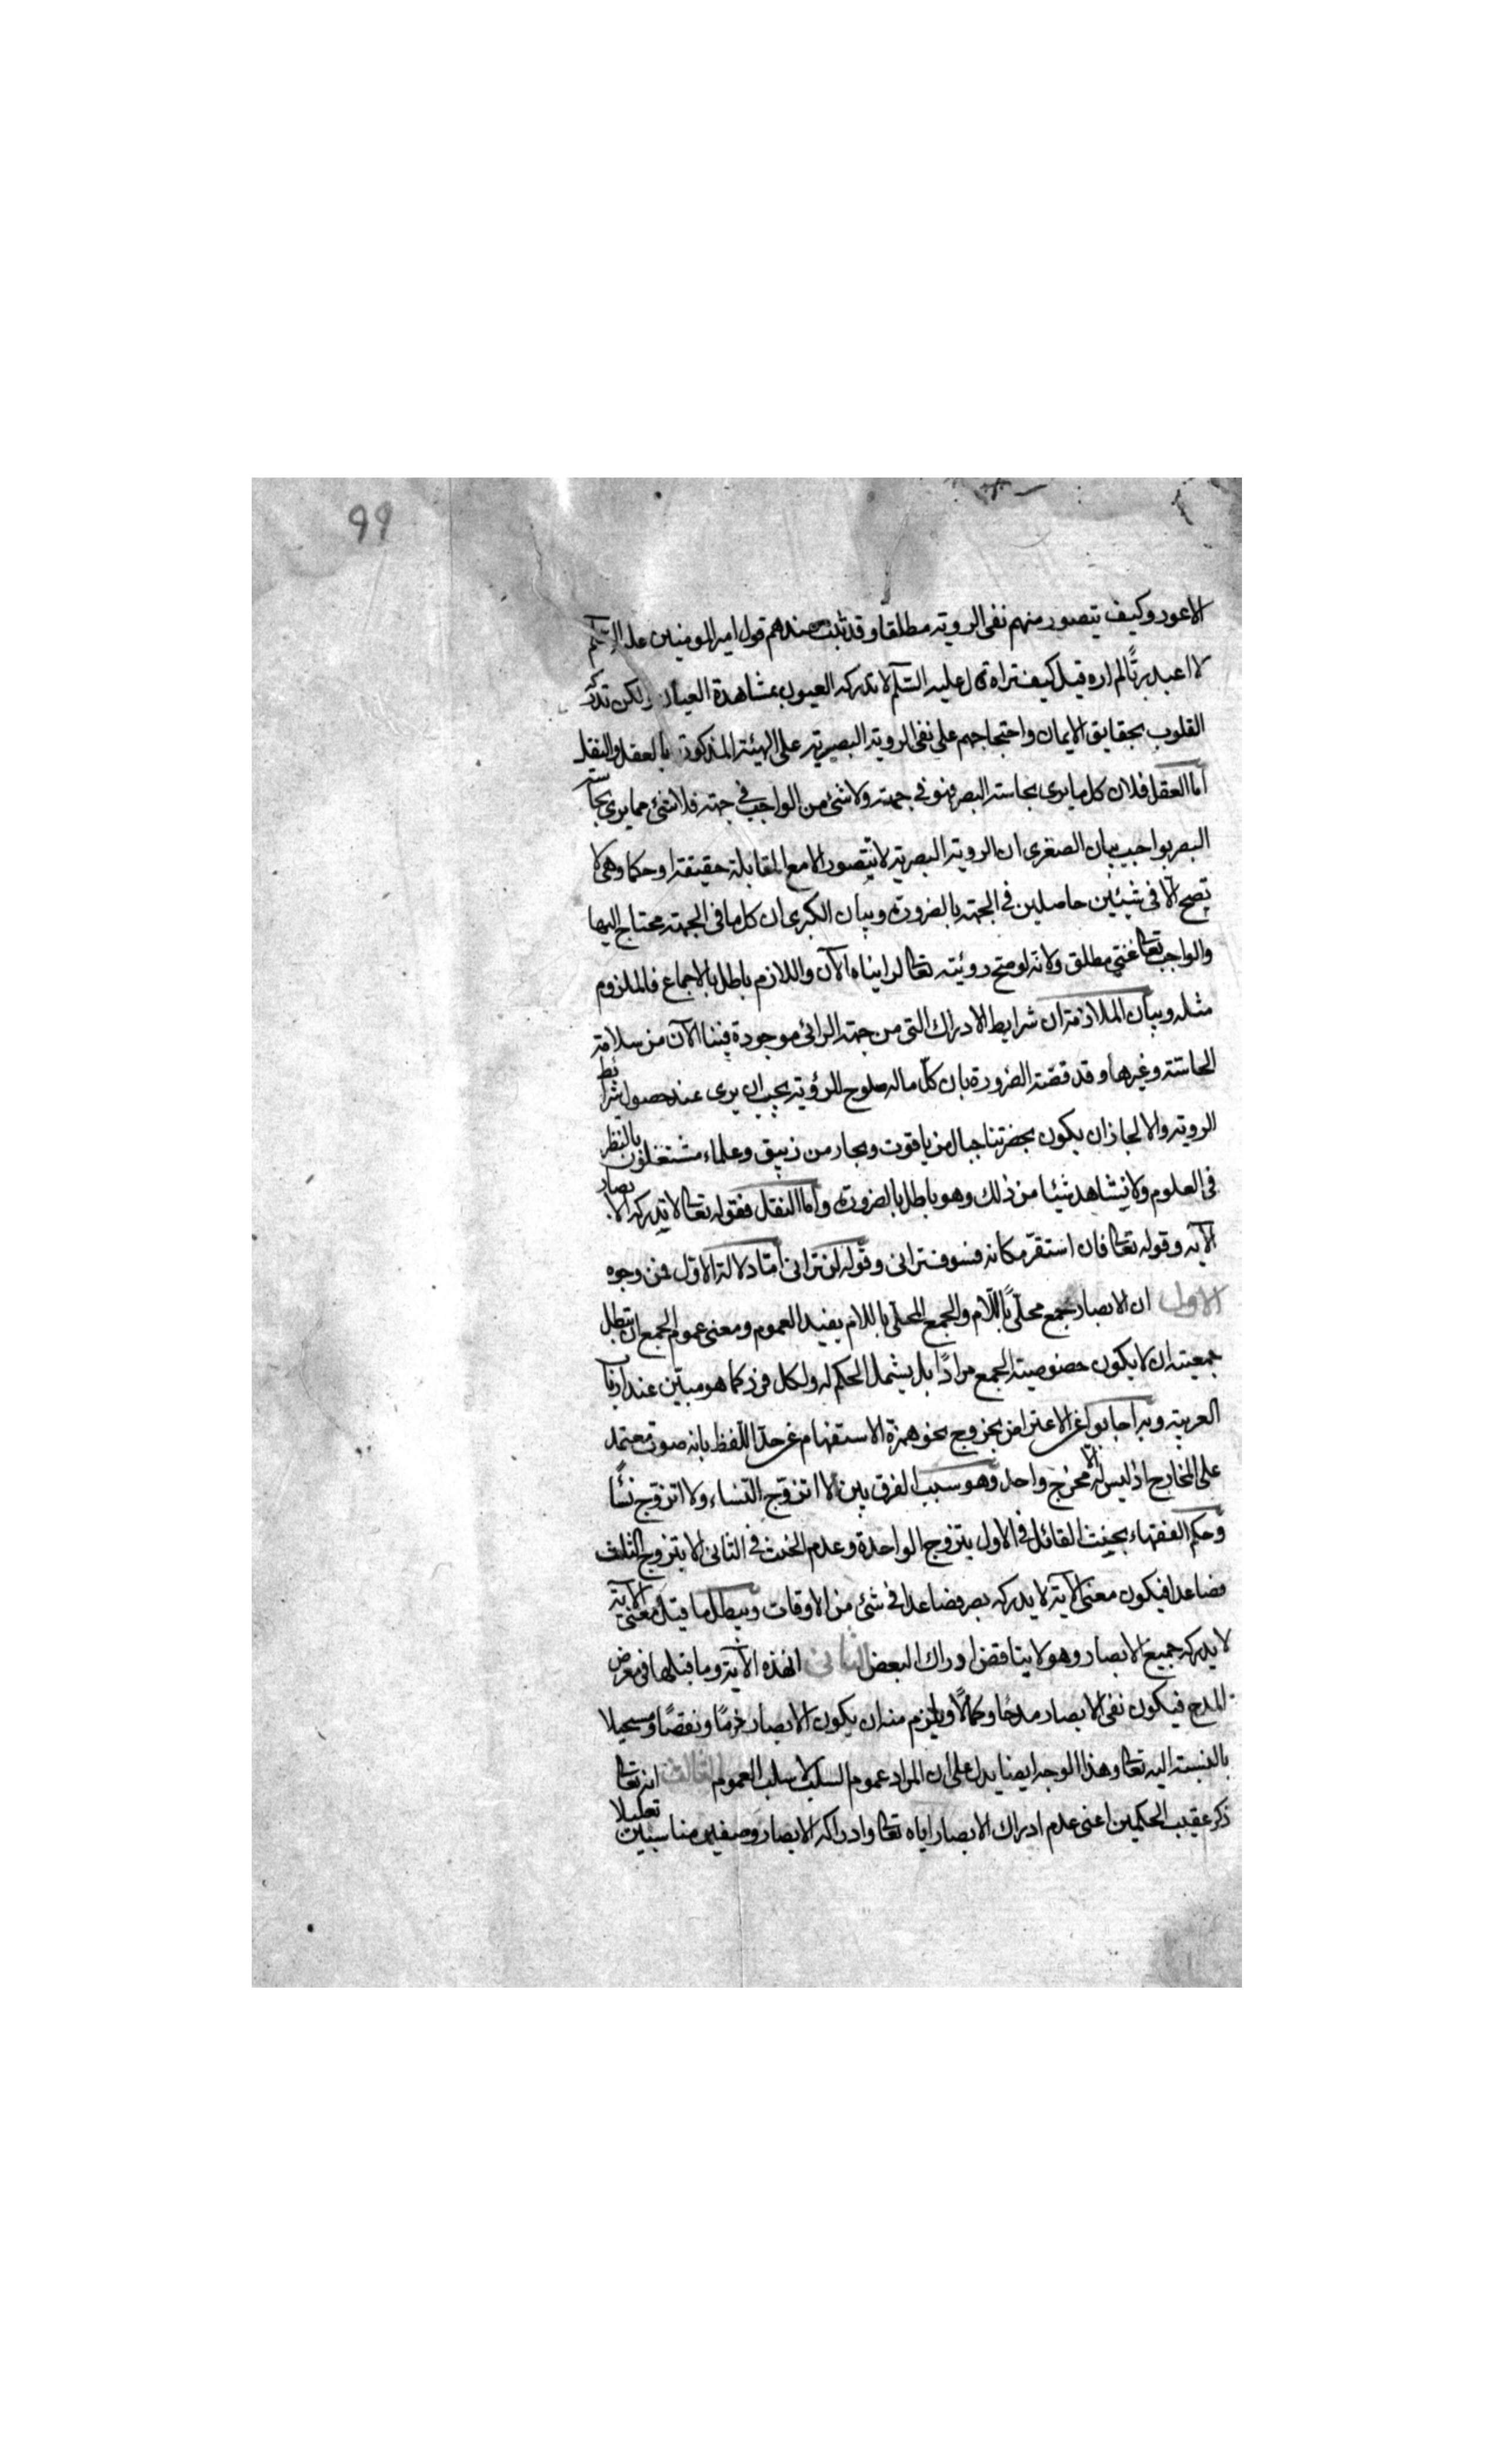 99
الاعور وكيف يتصور منهم نفى الروية مطلقا وقد ثبت عندهم قول امير المومنين عليه السلم
لا اعبد ربًّا لم اره وقيل كيف تراه قال عليه السّلم لا تدركه العيون بمشاهدة العيان ولكن تدركه
القلوب بحقايق الايمان واحتجاجهم على نفى الروية البصرية على الهيئة المذكورة بالعقل والنقل
اما العقل فلان كل ما يرى بحاسة البصر فهو فى جهة ولا شئ من الواجب فى جهة فلا شئ مما يرى بحاسة
البصر بواجب بيان الصغرى ان الروية البصرية لا تتصور الا مع المقابلة حقيقة او حكما وهى لا
تصح الّا فى شيئين حاصلين فى الجهة بالضرورة وبيان الكبرى ان كل ما فى الجهة محتاج اليها
والواجب تعالى غنى مطلق ولانه لو صح روئيته تعالى لرايناه الآن واللازم باطل بالاجماع فالملزوم
مثله وبيان الملازمة ان شرايط الادراك التى من جهة الرائى موجودة فينا الآن من سلامة
الحاسّة وغيرها وقد قضت الضرورة بان كلّ ما له صلوح للرؤية يجب ان يرى عند حصول شرائط
الروية والا لجاز ان يكون بحضرتنا جبال من ياقوت وبحار من زيبق وعلماء مشتغلون بالنظر
فى العلوم ولا نشاهد شيئا من ذلك وهو باطل بالضرورة واما النقل فقوله تعالى لا تدركه الابصار
الآية وقوله تعالى فان استقرّ مكانه فسوف ترانى وقوله لن ترانى امّا دلالة الاوّل فمن وجوه
الاول ان الابصار جمع محلّى باللّام والجمع المحلّى باللام يفيد العموم ومعنى عموم الجمع ان تبطل
جمعيته ان لا يكون خصوصية الجمع مرادًا بل يشمل الحكم له ولكل فرد كما هو مبيّن عند ارباب
العربية وبه اجابوا عن الاعتراض بخروج نحو همزة الاستفهام عن حدّ اللّفظ بانه صوت معتمد
على المخارج اذ ليس له الّا مخرج واحد وهو سبب الفرق بين لا اتزوّج النساء ولا اتزوّج نسًا
وحكم الفقهاء بحنث القائل فى الاول بتزوج الواحدة وعدم الحنث فى الثانى الا بتزوج الثلث
فصاعدا فيكون معنى الآية لا يدركه بصر فصاعدا فى شئ من الاوقات ويبطل ما قيل معنى الآية
لا يدركه جميع الابصار وهو لا يناقض ادراك البعض الثانى ان هذه الآية وما قبلها فى معرض
المدح فيكون نفى الابصار مدحًا وكمالًا ويلزم منه ان يكون الابصار ذمًّا ونقصًا ومستحيلا
بالنسبة اليه تعالى وهذا الوجه ايضا يدل على ان المراد عموم السلب لا سلب العموم الثالث انه تعالى
ذكر عقيب الحكمين اعنى عدم ادراك الابصار اياه تعالى وادراكه الابصار وصفين مناسبين تعليلا